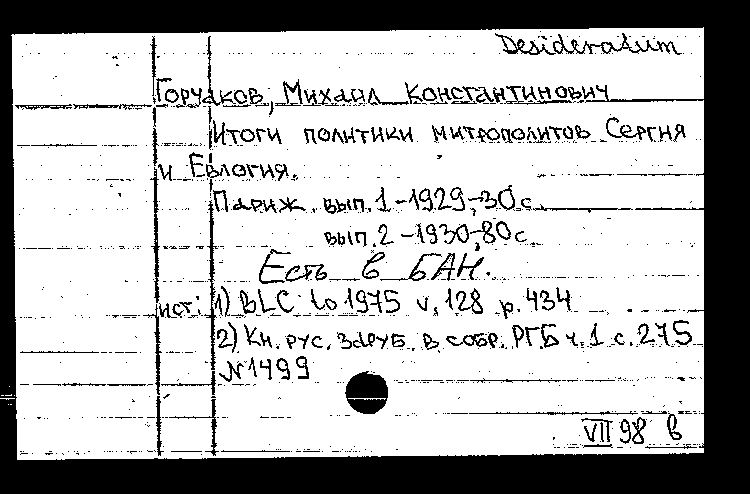 Desideratum
Горчаков, Михаил Константинович
Итоги политики митрополитов Сергия
и Евлогия.
Париж. вып. 1 - 1929, -30 с.
вып. 2 - 1930, -80 с.
Есть в БАН.
ист: 1) BLC to 1975 v. 128 p. 434
2) Кн. рус. заруб. в собр. РГБ ч. 1 с. 275
№ 1499
VII 98 в